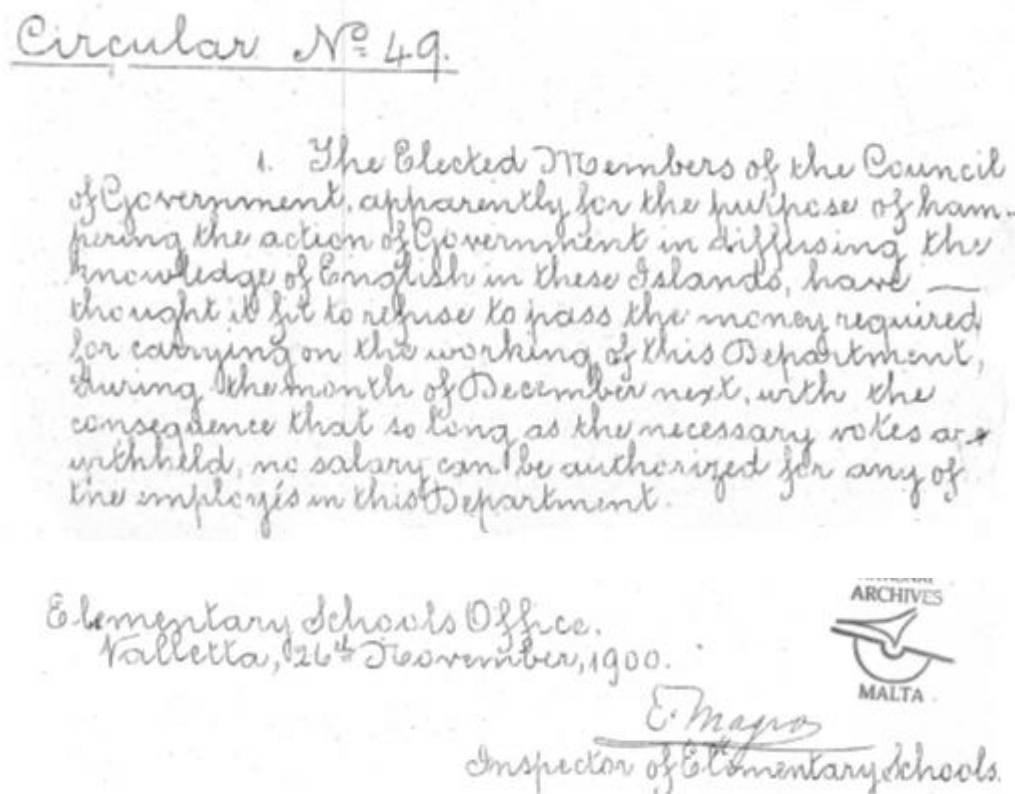 Circular Nº 49.
1. The Elected Members of the Council
of Government, apparently for the purpose of ham-
pering the action of Government in diffusing the
knowledge of English in these Islands, have —
thought it fit to refuse to pass the money required
for carrying on the working of this Department,
during the month of December next, with the
consequence that so long as the necessary votes are
withheld, no salary can be authorized for any of
the employés in this Department.
Elementary Schools Office.
Valletta, 26th November, 1900.
ARCHIVES
MALTA
E. Magro
Inspector of Elementary Schools.